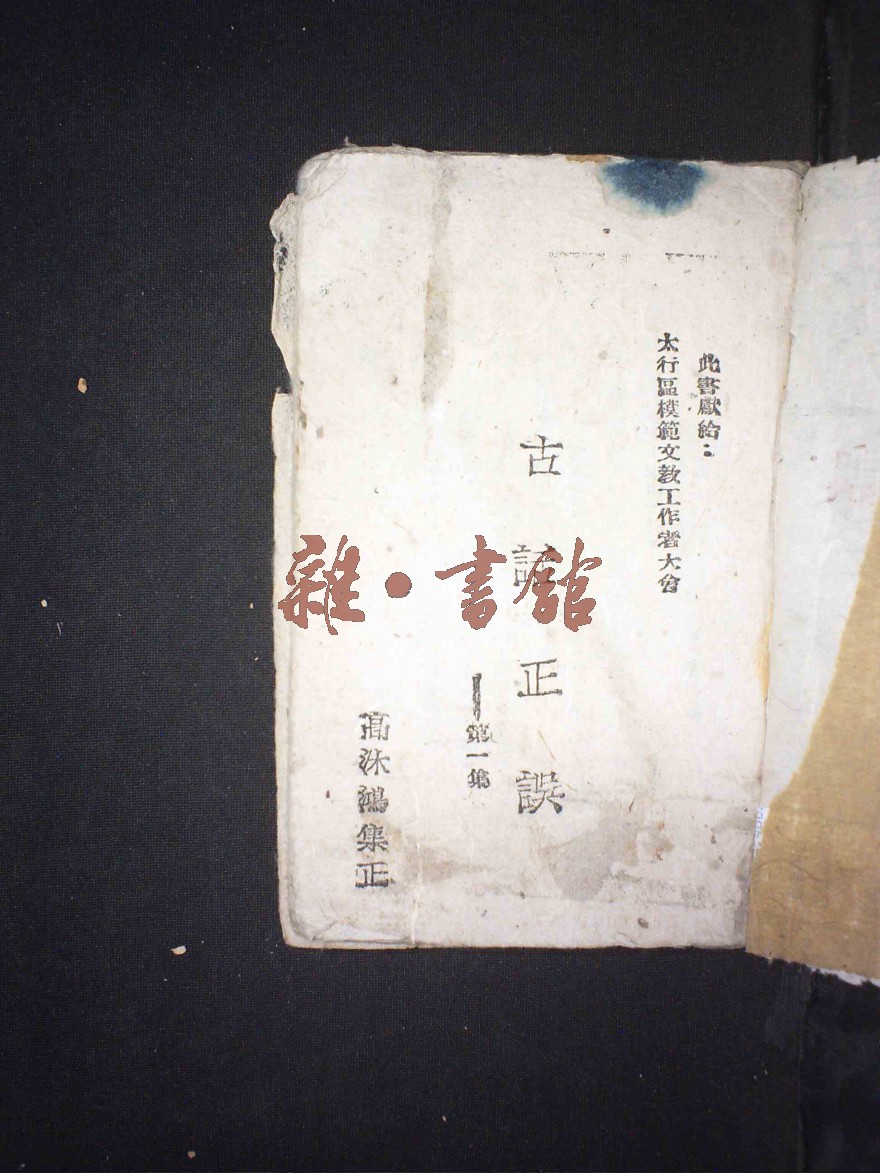 此書獻給：
太行區模範文教工作者大會
古話正誤
—第一集
高沐鴻集正
雜·書館